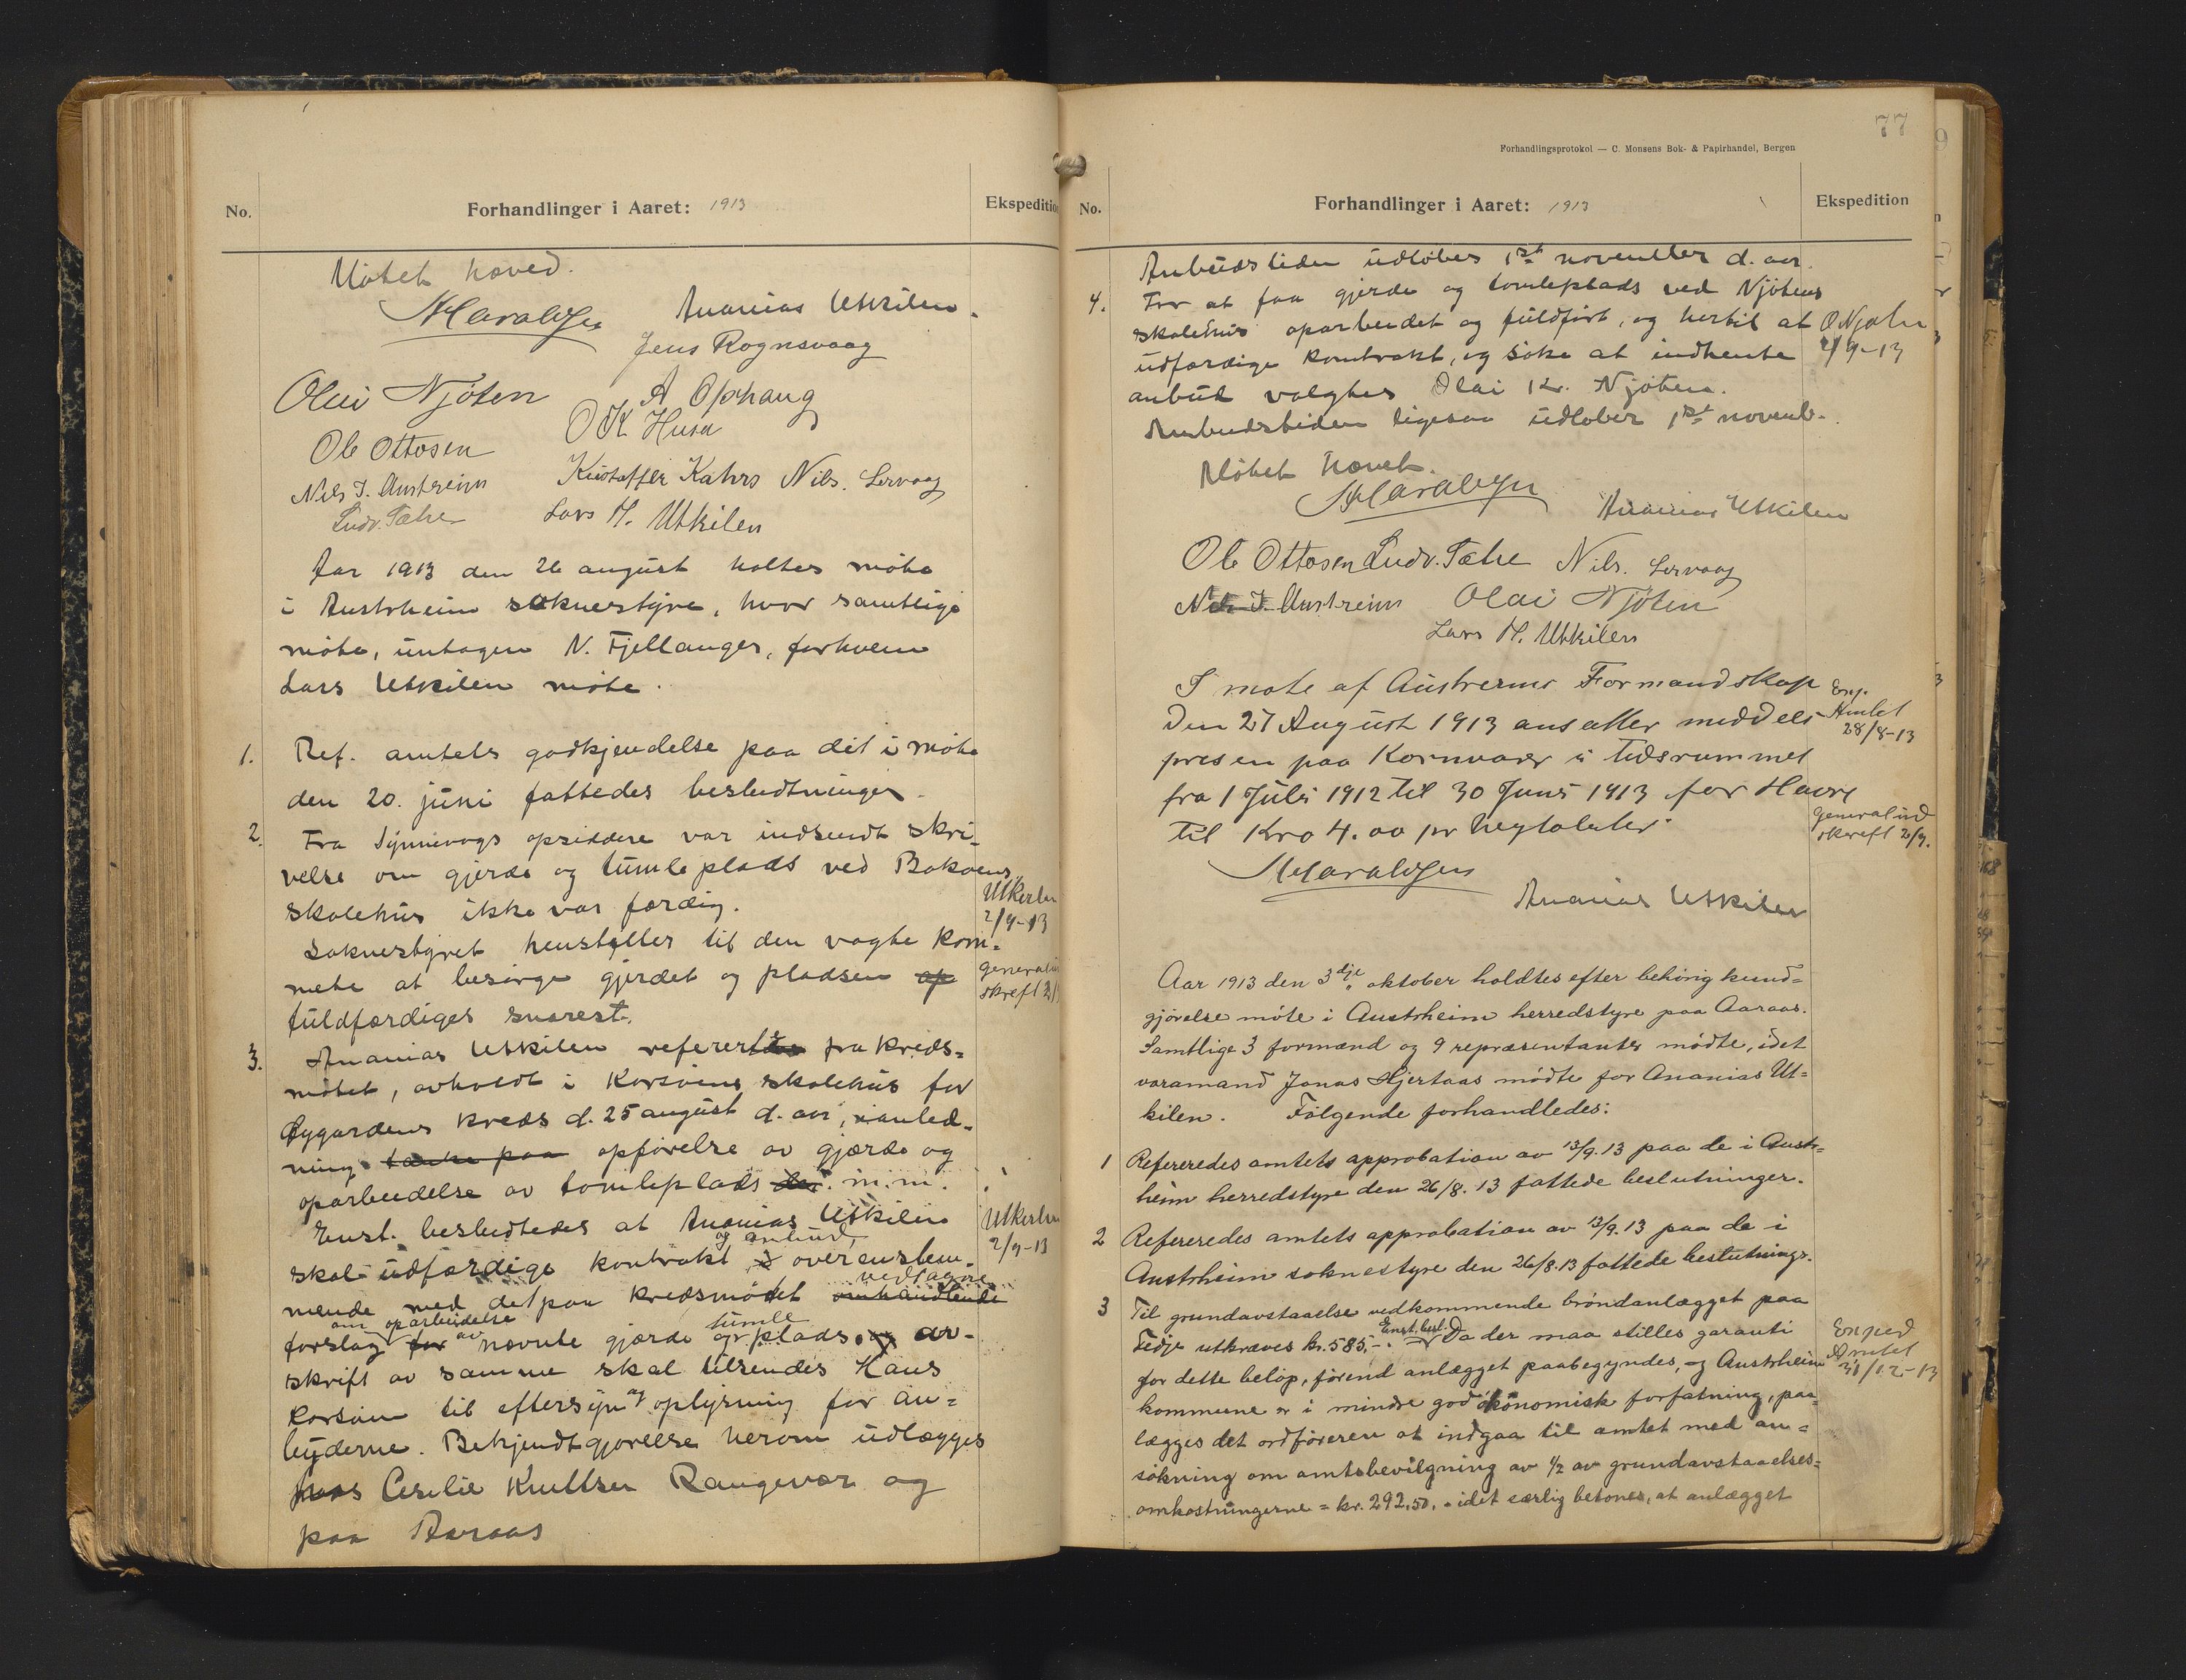 No.
Forhandlinger i Aaret: 1913
Ekspeditio
Møtet hæved.
A Haraldsen
Ananias Utkilen.
Jens Rognsvaag
Olai Njøten
A Ophaug
O K Husa
Ole Ottosen
Nils I. Austreim
Kristoffer Kahrs
Nils. Lervaag
Ludv. Sætre
Lars M. Utkilen
Aar 1913 den 26 august holtes møte
i Austrheim soknestyre, hvor samtlige
møte, untagen N. Fjellanger, forhvem
Lars Utkilen møte.
1. Ref. amtets godkjendelse paa det i møte
den 20. juni fattedes besludtninger.
2. Fra Synnevogs opsiddere var indsendt skri-
velse om gjerde og tumleplads ved Bakøens
skolehus ikke var færdig.
Utkilen
2/9-13
Soknestyret henstiller til den vagte kom-
mete at besørge gjerdet og pladsen op
general
skreft 2/
fuldfærdiges snarest.
3. Ananias Utkilen refererte fra kreds-
møtet, avholdt i Korsøens skolehus for
Øygardens kreds d. 25 august d. aar, ianled-
ning tanke paa opførelse av gjærde og
oparbeidelse av tomleplads der m.m.
Enst. besludtedes at Ananias Utkilen
Utkilen
2/9-13
og anbud,
skal udfærdige kontrakt, i overenstem-
vedtagne
mende med det paa kredsmødet omhandlende
om oparbeidelse av
tumle
forslag for nævnte gjærde og plads, og av-
skrift av samme skal tilsendes Hans
Korsøen til eftersyn og oplysning for an-
byderne. Bekjendtgjørelse herom udlægges
hos Cesilie Knutsen Rangevær og
paa Aaraas
77
Forhandlingsprotokol — C. Monsens Bok- & Papirhandel, Bergen
No.
Forhandlinger i Aaret: 1913
Ekspedition
Anbudstiden udløber 1st november d. aar.
4. For at faa gjerde og tomleplads ved Njøtens
skolehus oparbeidet og fuldført, og hertil at
O Njøten
2/9-13
udfærdige kontrakt, og søke at indhente
anbud valgtes Olai K. Njøten.
Anbudstiden ligesaa udløber 1st novemb.
Møtet hævet.
A Haraldsen
Ananias Utkilen
Ole Ottosen Ludv. Sætre Nils. Lervaag
Nils I. Austreim Olai Njøten
Lars M. Utkilen
I møte af Austreims Formandskap
Den 27 August 1913 ansatter middels
Exp.
Amtet
28/8-13
prisen paa Kornvarer i tidsrummet
fra 1 Juli 1912 til 30 Juni 1913 for Havre
til Kro 4.00 pr hegtoliter
generalud
skreft 2/9.
A Haraldsen
Ananias Utkilen
Aar 1913 den 3dje oktober holdtes efter behörig kund-
gjörelse möte i Austrheim herredstyre paa Aaraas.
Samtlige 3 formænd og 9 repræsentanter mödte, idet
varamand Jonas Hjertaas mödte for Ananias Ut-
kilen. Fölgende forhandledes:
1 Refereredes amtets approbation av 13/9.13 paa de i Austr-
heim herredstyre den 26/8.13 fattede beslutninger.
2 Refereredes amtets approbation av 13/9.13 paa de i
Austrheim soknestyre den 26/8.13 fattede beslutninger.
3 Til grundavstaaelse vedkommende bröndanlægget paa
Enst. besl.
Fedje utkræves kr. 585,-. Da der maa stilles garanti
Exped
Amtet
31/12-13
for dette belöp, förend anlægget paabegyndes, og Austrheim
kommune er i mindre god ökonomisk forfatning, paa-
lægges det ordföreren at indgaa til amtet med an-
sökning om amtsbevilgning av 1/2 av grundavstaaelses-
omkostningerne = kr. 292,50, idet særlig betones, at anlægget